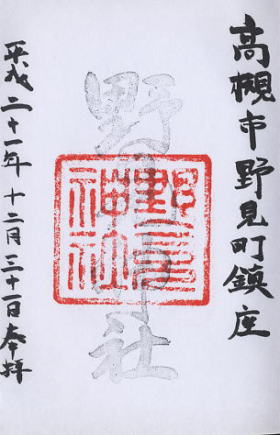 高槻市野見町鎮座
野見神社
野見神社
平成二十一年十二月三十一日奉拝